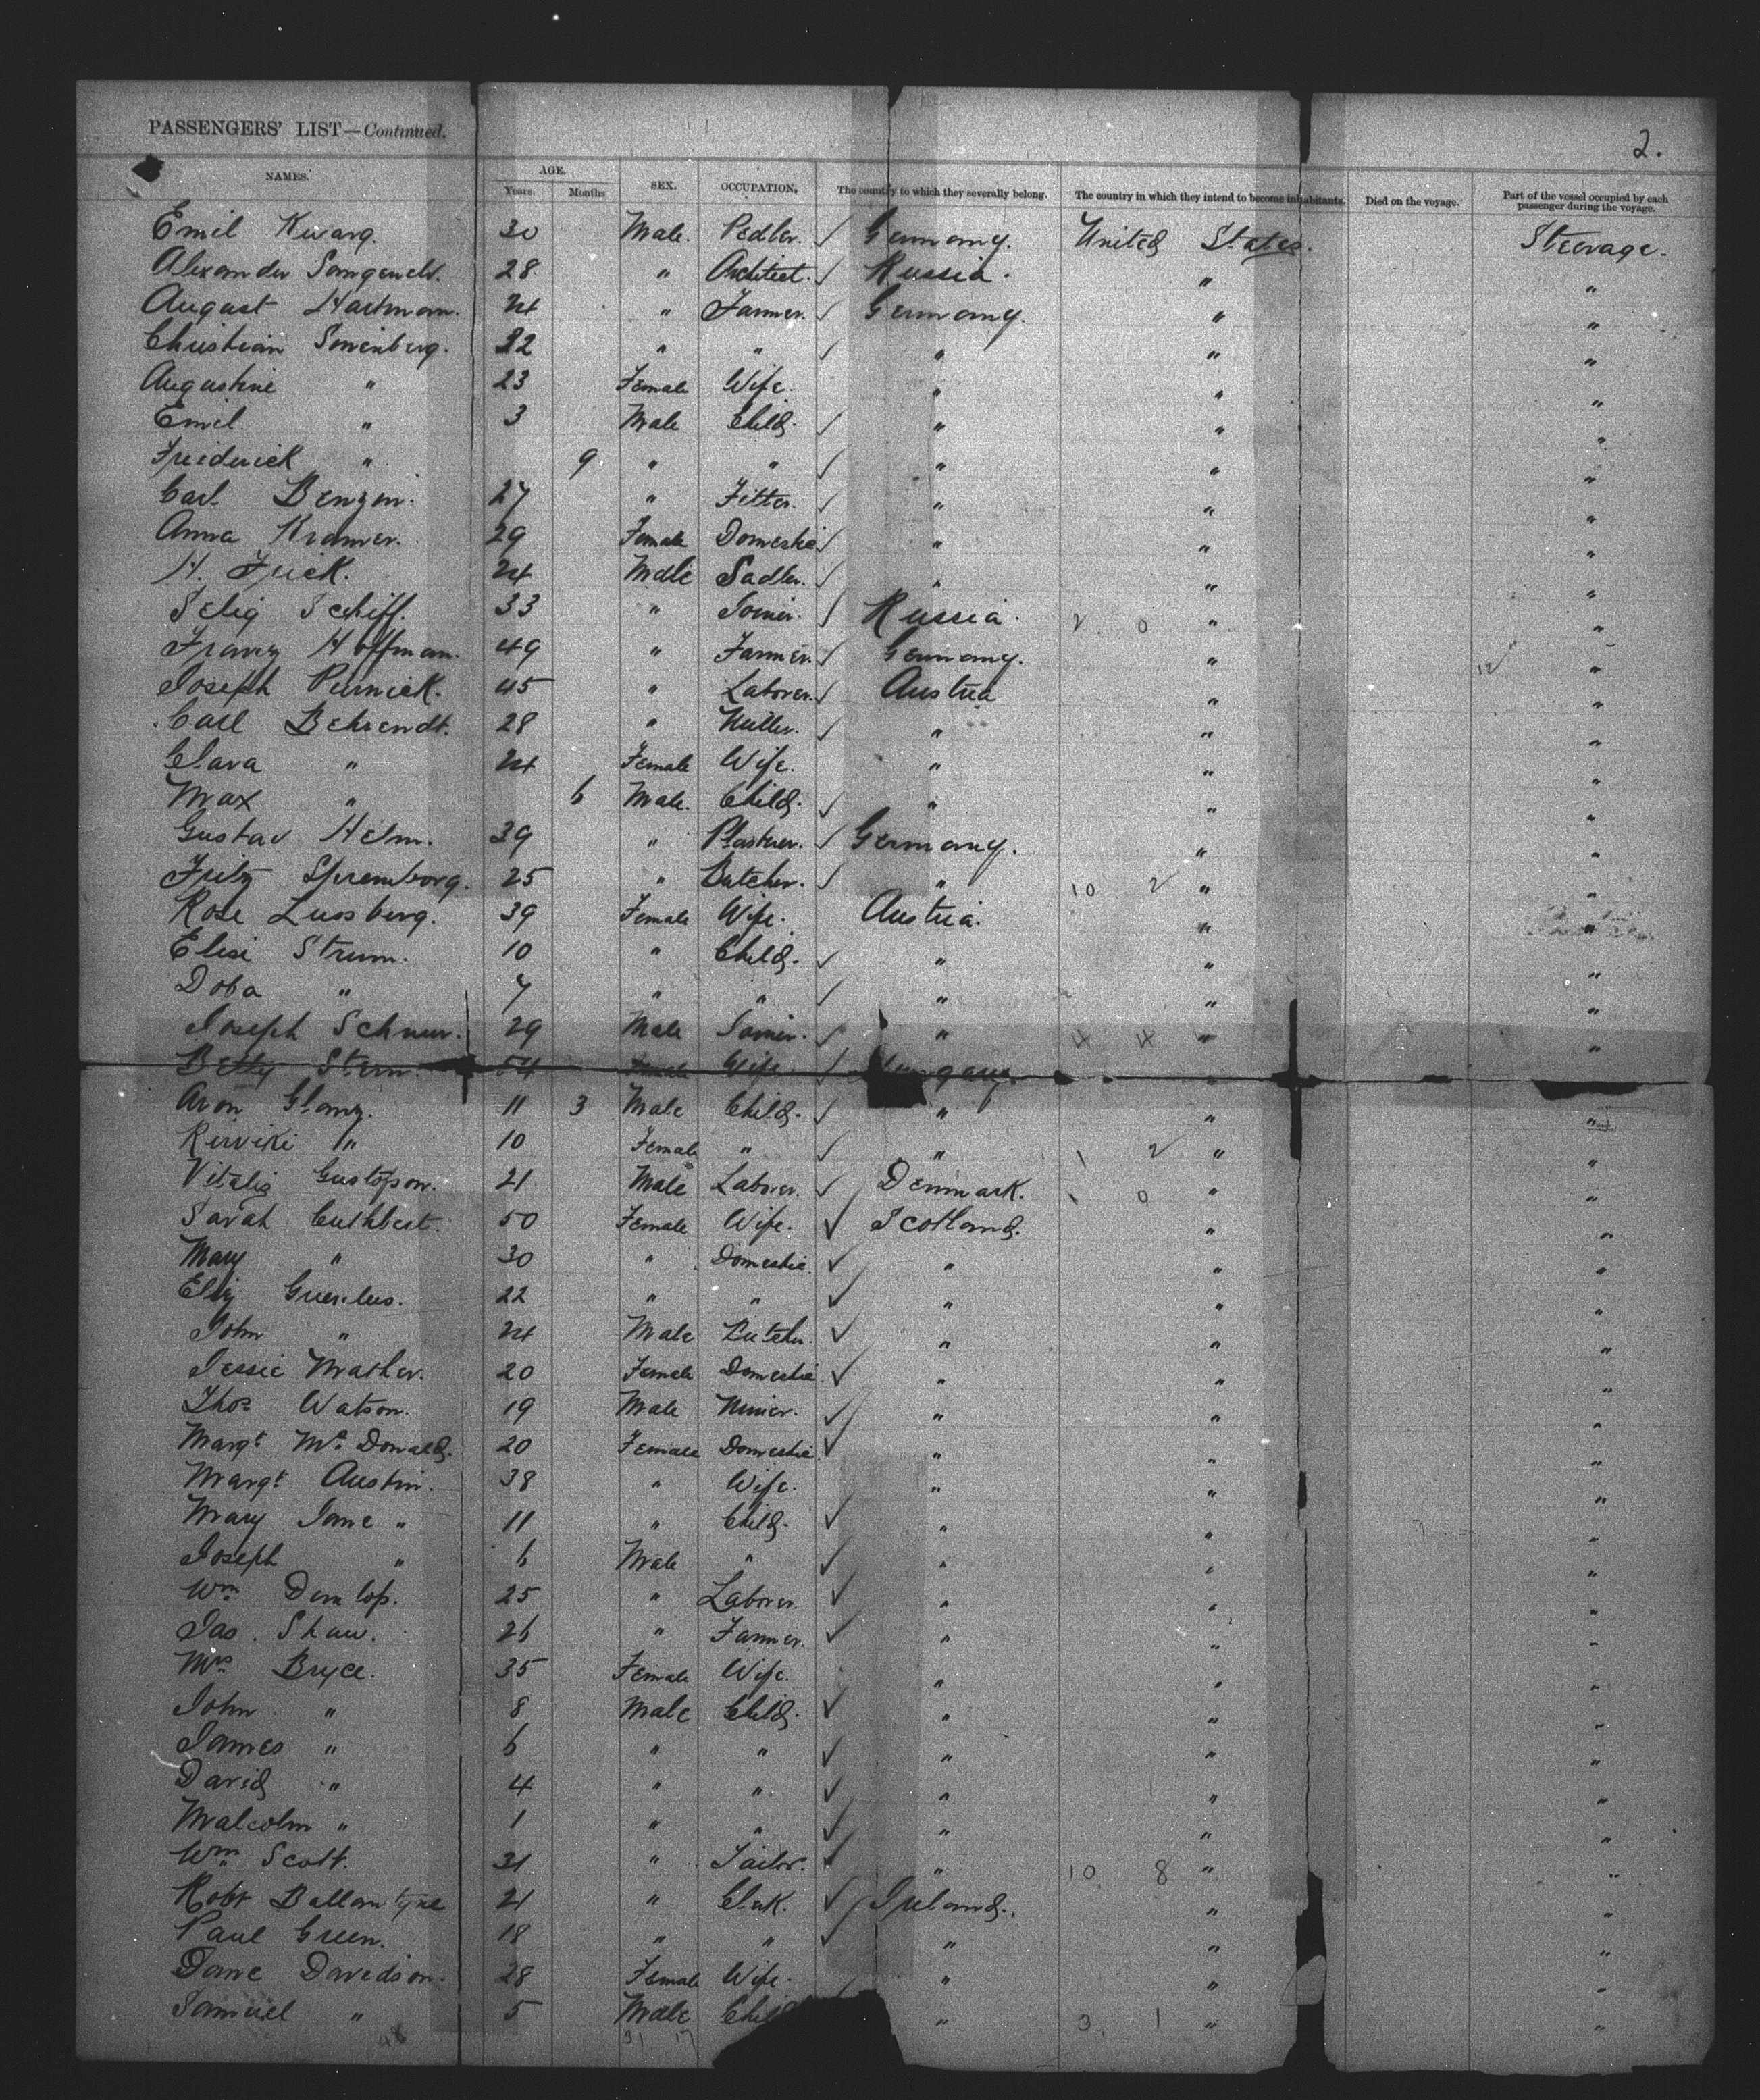 PASSENGERS' LIST—Continued.
2.
NAMES. AGE. Years. Months SEX. OCCUPATION, The country to which they severally belong. The country in which they intend to become inhabitants. Died on the voyage. Part of the vessel occupied by each passenger during the voyage.
Emil Kwarq. 30 Male. Pedler. ✓ Germany. United States. Steerage.
Alexander 28 " Architect. ✓ Russia. " "
August Hartman. 24 " Farmer. ✓ Germany. " "
Christian Sonenberg. 22 " " ✓ " " "
Augustine " 23 Female Wife. " " "
Emil. " 3 Male Child. ✓ " " "
Friederick " 9 " " ✓ " " "
Carl Benzin. 27 " Fitter. ✓ " " "
Anna Kramer. 29 Female Domestic ✓ " " "
H. Frick. 24 Male Sadler. ✓ " " "
Selig Schiff. 33 " Joiner. ✓ Russia. 2 0 " "
Franz Hoffman. 49 " Farmer. ✓ Germany. " 12 "
Joseph Pernick. 45 " Laborer. ✓ Austria " "
Carl Behrendt. 28 " ✓ " " "
Clara " 24 Female Wife. " " "
Max " 6 Male. Child. ✓ " " "
Gustav Helm. 39 " Plasterer. ✓ Germany. " "
Fritz Spremborg. 25 " Butcher. ✓ " 10 2 " "
Rose Lussberg. 39 Female Wife. Austria. " "
Elise Strum. 10 " Child. ✓ " " "
Doba " 7 " " ✓ " " "
Joseph Schnur. 29 Male Joiner. ✓ " 4 4 " "
Betty Stern. 54 Female Wife ✓ Hungary. "
Aron Glanz. 11 3 Male Child. ✓ " " "
Rivike " 10 Female " ✓ " 1 2 " "
Vitalis Gustafson. 21 Male Laborer. ✓ Denmark. 1 0 " "
Sarah Cuthbert. 50 Female Wife. ✓ Scotland. " "
Mary " 30 " Domestic. ✓ " " "
Eliz 22 " " ✓ " " "
John " 24 Male Butcher. ✓ " " "
Jessie Mather. 20 Female Domestic ✓ " " "
Thos Watson. 19 Male Miner. ✓ " " "
Margt McDonald. 20 Female Domestic ✓ " " "
Margt Austin. 38 " Wife. " " "
Mary Jane " 11 " Child. ✓ " " "
Joseph " 6 Male " ✓ " " "
Wm Dunlop. 25 " Laborer. ✓ " " "
Jas. Shaw. 26 " Farmer. ✓ " " "
Mrs Bryce. 35 Female Wife. " " "
John " 8 Male Child. ✓ " " "
James " 6 " " ✓ " " "
David " 4 " " ✓ " " "
Malcolm " 1 " " ✓ " " "
Wm Scott. 31 " Tailor. ✓ " 10 8 " "
Robt Ballantyne 21 " Clerk. ✓ Ireland. " "
Paul Green. 18 " " ✓ " " "
Jane Davidson. 28 Female Wife. " " "
Samuel " 5 Male Child " 3 1 " "
48 31 17